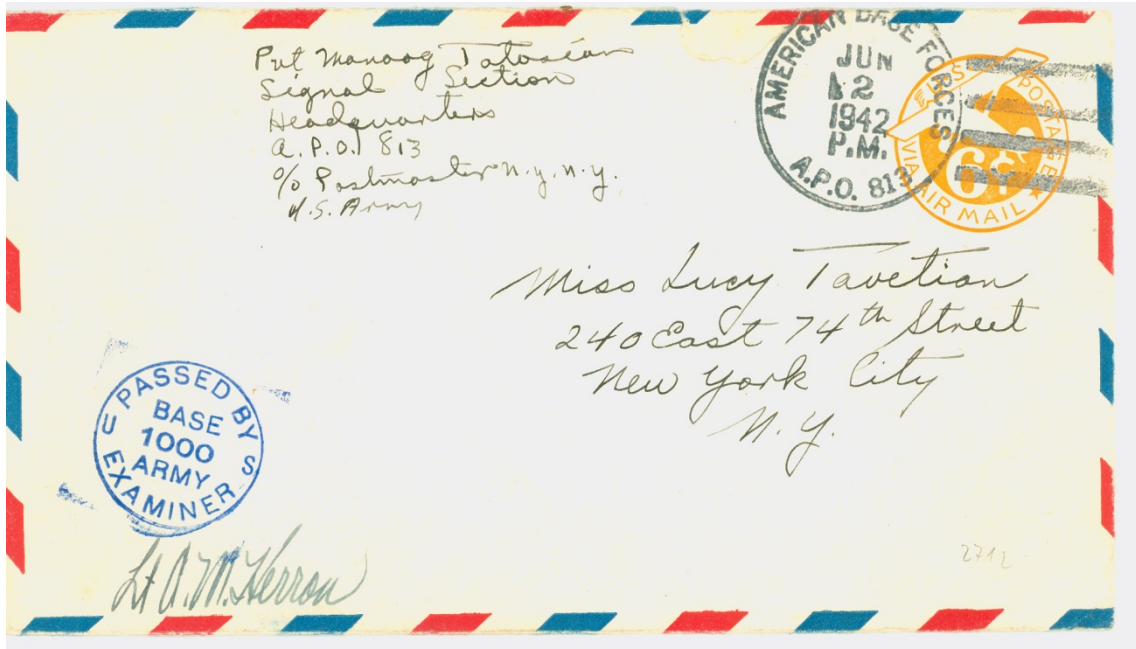 Pvt Manoog Tatosian
Signal Section
Headquarters
A.P.O. 813
c/o Postmaster N.Y. N.Y.
U.S. Army
AMERICAN BASE FORCES
JUN
2
1942
P.M.
A.P.O. 813
U.S. POSTAGE
6¢
VIA AIR MAIL
Miss Lucy Tavetian
240 East 74th Street
New York City
N.Y.
PASSED BY
U S
BASE
1000
ARMY
EXAMINER
Lt A.M. Herron
2712